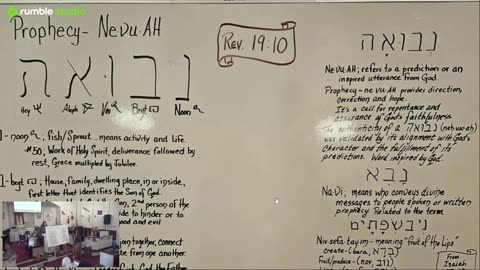 rumble studio
Prophecy- NeVu·AH
נבואה
Hey Aleph Beyt Noon
]- noon , Fish/Sprout - means activity and life
#50; Work of Holy Spirit, deliverance followed by
rest, Grace multiplied by Jubilee.
]- beyt ; House, family, dwelling place, in or inside,
first letter that identifies the Son of God.
Son, 2nd person of the
to hinder or to
good and evil
join together, connect
from one another.
God the Father
Rev. 19:10
נְבוּאָה
NeVU·AH; refers to a prediction or an
inspired utterance from God.
Prophecy- ne·vu·AH provides direction,
correction and hope.
It's a call for repentance and
assurance of God's faithfulness
The authenticity of a נְבוּאָה
was validated by its alignment with God's
character and the fulfillment of its
predictions. Word inspired by God.
נָבִא
means who conveys divine
messages to people spoken or written
prophecy. Related to the term
ניב שפתים
Niv·sefa·tayim- meaning "fruit of the lips"
create-(bara,
Fruit/produce-(nov,
From
Isaiah